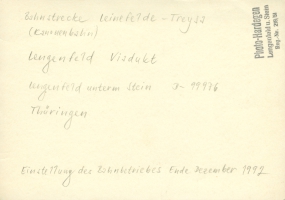 Bahnstrecke Leinefelde - Treysa
(Kanonenbahn)
Lengenfeld Viadukt
Lengenfeld unterm Stein
Thüringen
Einstellung des Bahnbetriebes Ende Dezember 1992
Photo-Hardegen
Lengenfeld u. Stein